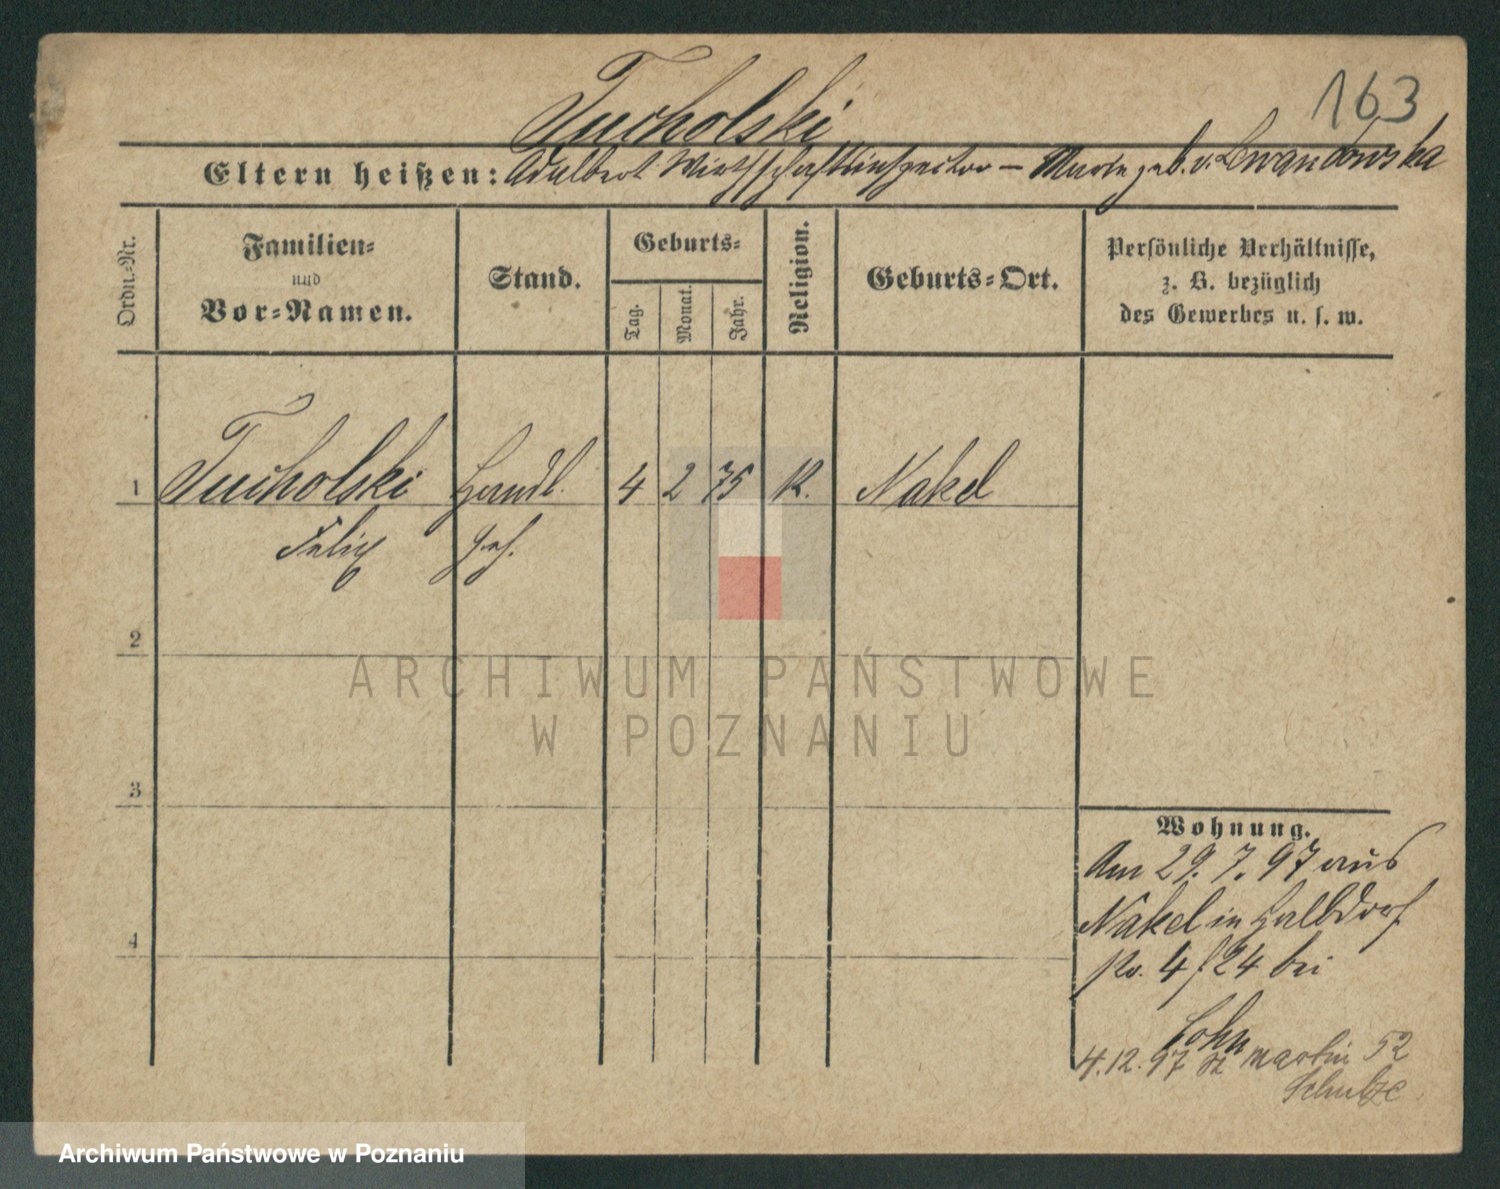 163
Tucholski
Eltern heißen: Adalbert Wirthschaftsinspector – Marie geb. v. Lewandowska
Ordn.-Nr.
Familien- und Vor-Namen.
Stand.
Geburts-
Tag.
Monat.
Jahr.
Religion.
Geburts-Ort.
Persönliche Verhältnisse,
z. B. bezüglich
des Gewerbes u. s. w.
1 Tucholski Handl. 4 2 75 K. Nakel
Felix geh.
2
3
4
Wohnung.
Am 29. 7. 97 aus
Nakel in Halbdorf
4/24 bei
Cohn
4.12.97 St Martin 52
Schulze
ARCHIWUM PAŃSTWOWE
W POZNANIU
Archiwum Państwowe w Poznaniu